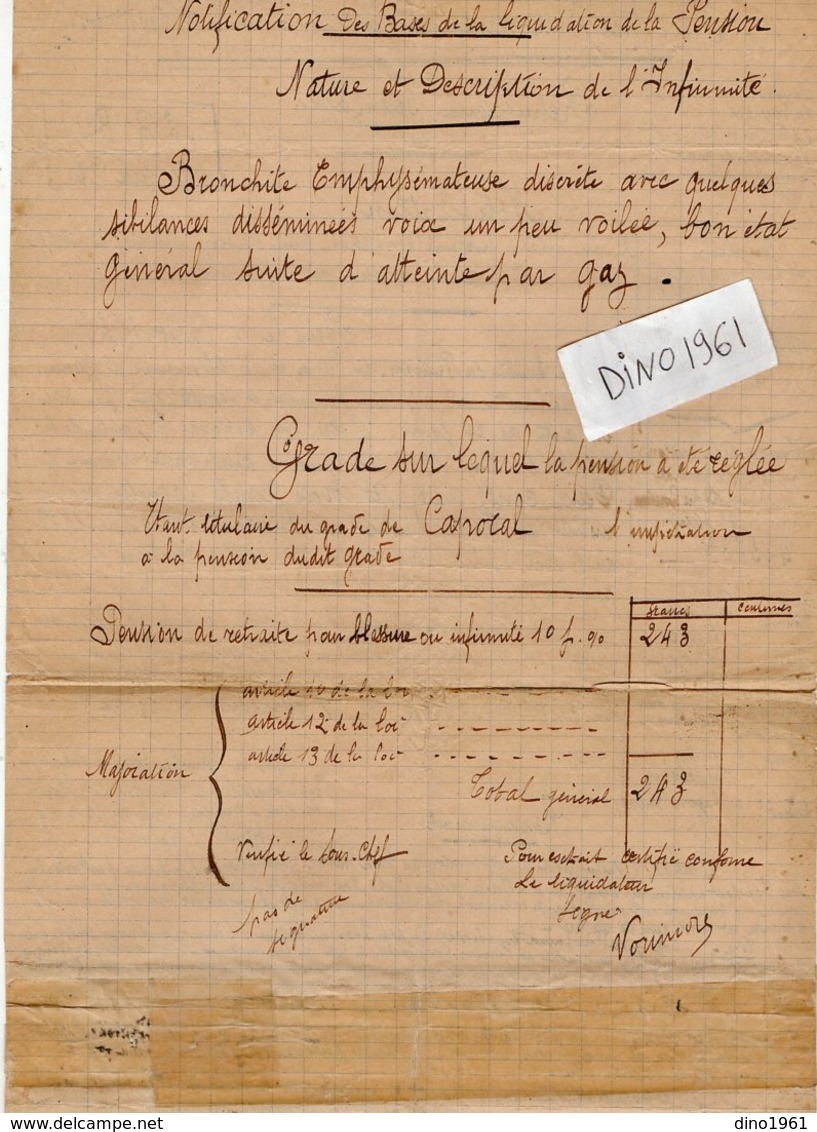 Notification Des Bases de la liquidation de la Pension
Nature et Description de l'Infirmité.
Bronchite Emphysémateuse discrète avec quelques
sibilances disséminées voix un peu voilée, bon état
général suite d'atteinte par gaz.
DiNO1961
Grade sur lequel la pension a été réglée
Etant titulaire du grade de Caporal
à la pension dudit grade
francs centimes
Pension de retraite pour blessure ou infirmité 10 p. % 243
article 10 de la loi
article 12 de la loi
article 13 de la loi
Majoration
Total général 243
Vérifié le Sous-Chef
Pour extrait certifié conforme
Le liquidateur
Signé
pas de
signature
delcampe.net
dino1961